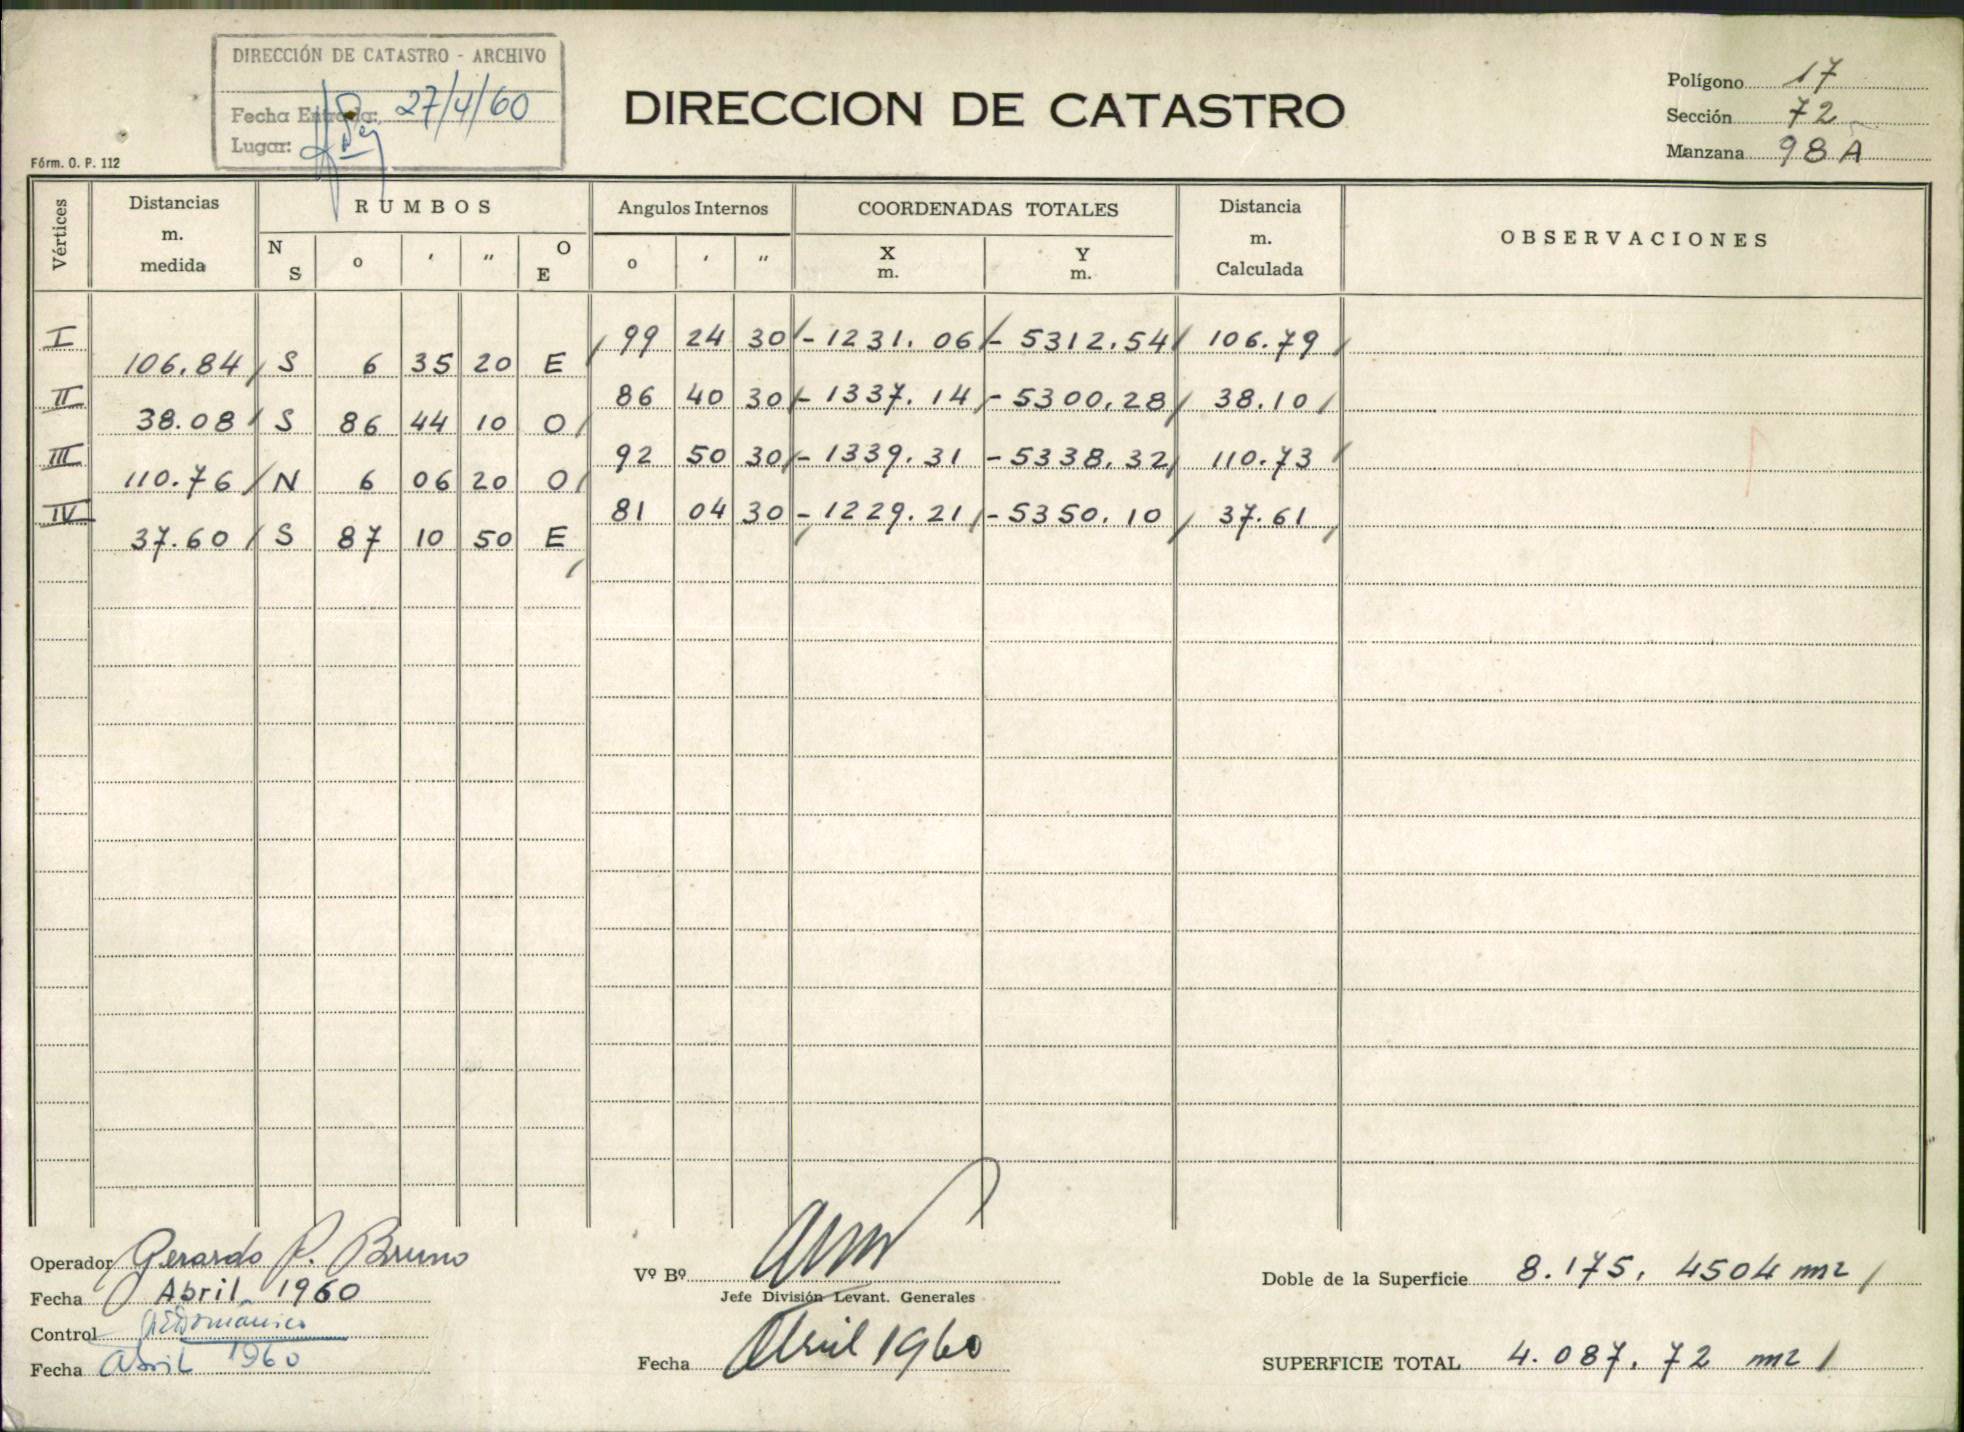 DIRECCIÓN DE CATASTRO - ARCHIVO
Fecha Entrada: 27/4/60
Lugar:
Fórm. O. P. 112
DIRECCION DE CATASTRO
Polígono 17
Sección 72
Manzana 98 A
Vértices Distancias m. medida RUMBOS N S o ′ ″ O E Angulos Internos o ′ ″ COORDENADAS TOTALES X m. Y m. Distancia m. Calculada OBSERVACIONES
I 99 24 30 - 1231.06 - 5312.54 106.79
106.84 S 6 35 20 E
II 86 40 30 - 1337.14 - 5300.28 38.10
38.08 S 86 44 10 O
III 92 50 30 - 1339.31 - 5338.32 110.73
110.76 N 6 06 20 O
IV 81 04 30 - 1229.21 - 5350.10 37.61
37.60 S 87 10 50 E
Operador Gerardo P. Bruno
Fecha Abril 1960
Control
Fecha Abril 1960
Vº Bº
Jefe División Levant. Generales
Fecha Abril 1960
Doble de la Superficie 8.175,4504 m2
SUPERFICIE TOTAL 4.087,72 m2